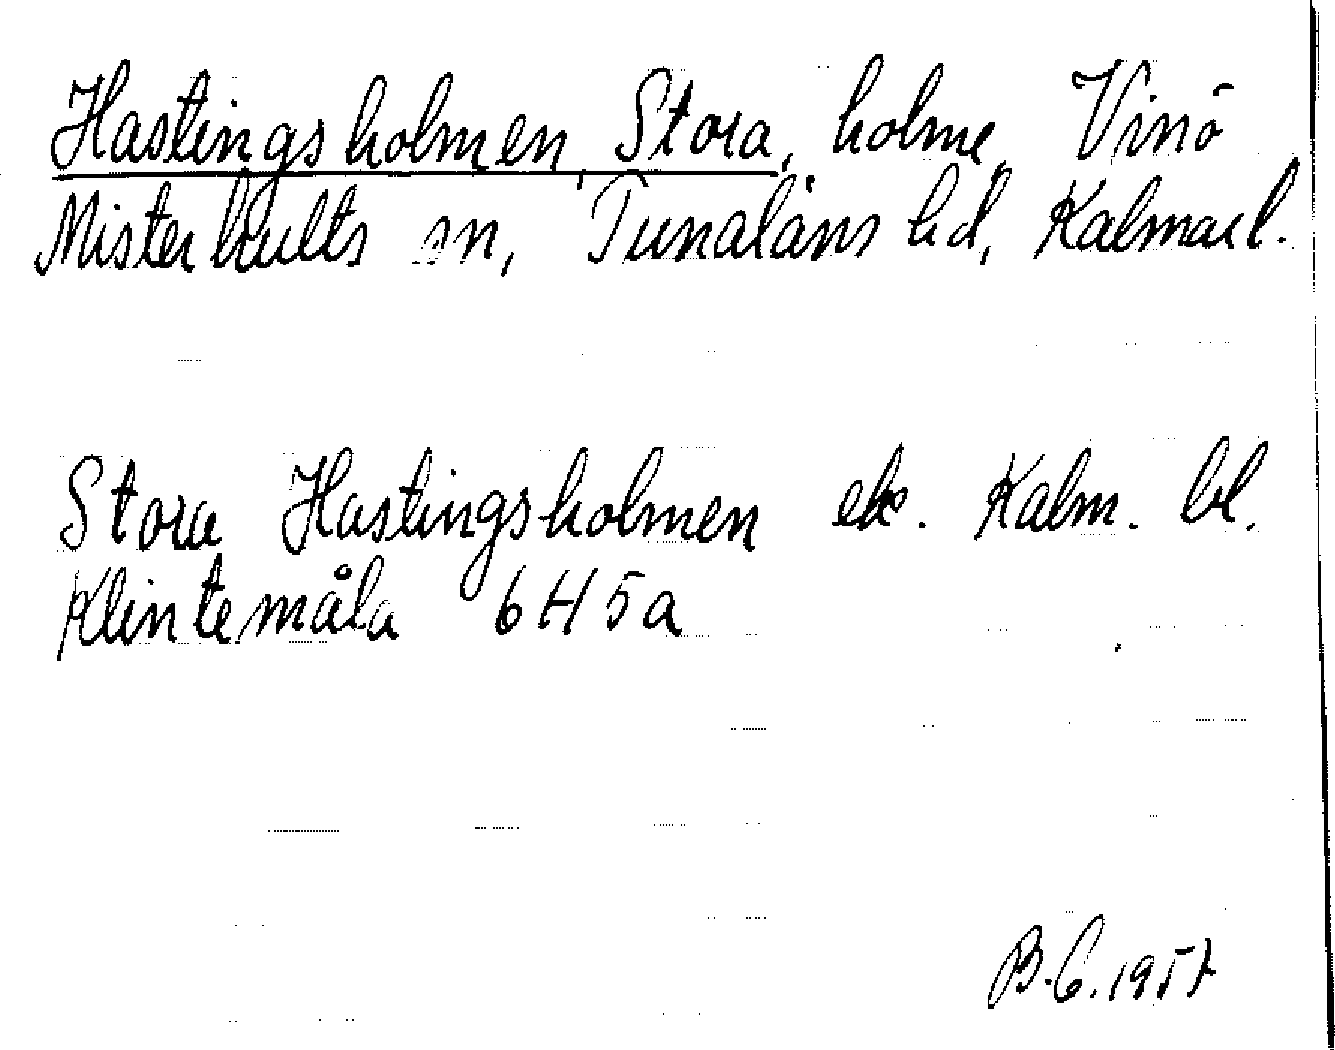 Hastingsholmen, Stora, holme, Vinö
Misterhults sn, Tunaläns hd, Kalmar l.
Stora Hastingsholmen ek. Kalm. bl.
Klintemåla 6H5a
B.C. 1957